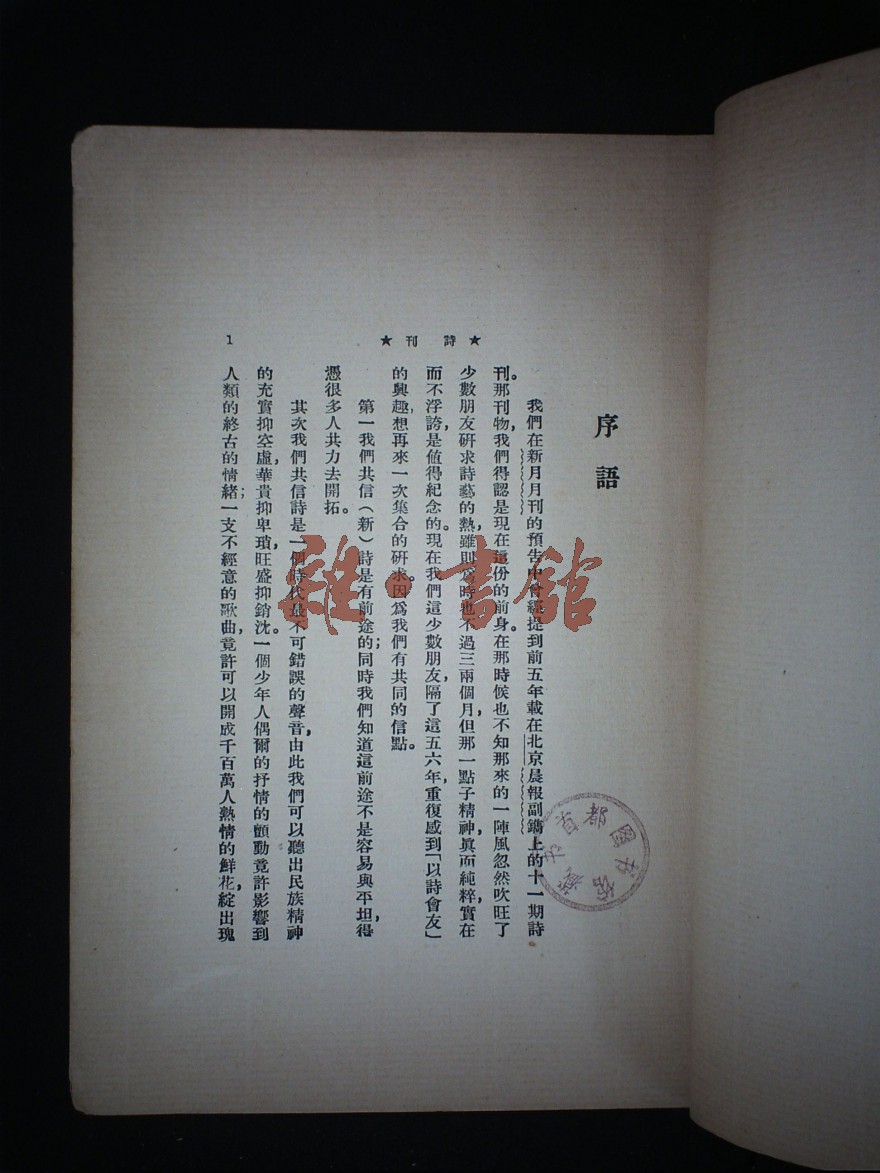 ★ 詩 刊 ★
1
序語
我們在新月月刊的預告中曾經提到前五年載在北京晨報副鐫上的十一期詩
刊。那刊物,我們得認是現在這份的前身。在那時候也不知那來的一陣風忽然吹旺了
少數朋友研求詩藝的熱,雖則為時也不過三兩個月,但那一點子精神,真而純粹,實在
而不浮誇,是值得紀念的。現在我們這少數朋友,隔了這五六年,重復感到「以詩會友」
的興趣,想再來一次集合的研求。因為我們有共同的信點。
第一我們共信(新)詩是有前途的;同時我們知道這前途不是容易與平坦,得
憑很多人共力去開拓。
其次我們共信詩是一個時代最不可錯誤的聲音,由此我們可以聽出民族精神
的充實抑空虛,華貴抑卑瑣,旺盛抑銷沈。一個少年人偶爾的抒情的顫動竟許影響到
人類的終古的情緒;一支不經意的歌曲,竟許可以開成千百萬人熱情的鮮花,綻出瑰
首都圖书館藏书
雜·書館